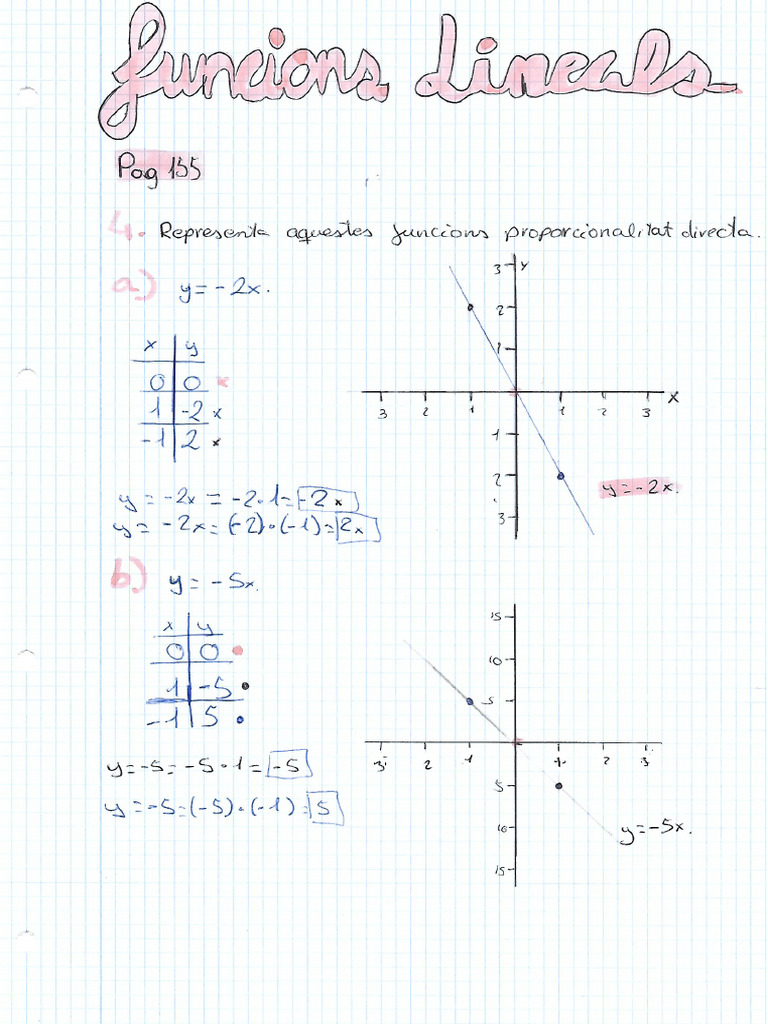 Funcions Lineals
Pag 155
4. Representa aquestes funcions proporcionalitat directa.
a) y = -2x.
x y
0 0 x
1 -2 x
-1 2 x
y = -2x = -2·1 = -2x
y = -2x = (-2)·(-1) = 2x
3 y
2
1
3 2 1 1 2 3 X
1
2
3
y = -2x.
b) y = -5x.
x y
0 0
1 -5
-1 5
y = -5 = -5·1 = -5
y = -5 = (-5)·(-1) = 5
15
10
5
3 2 1 1 2 3
5
10
15
y = -5x.